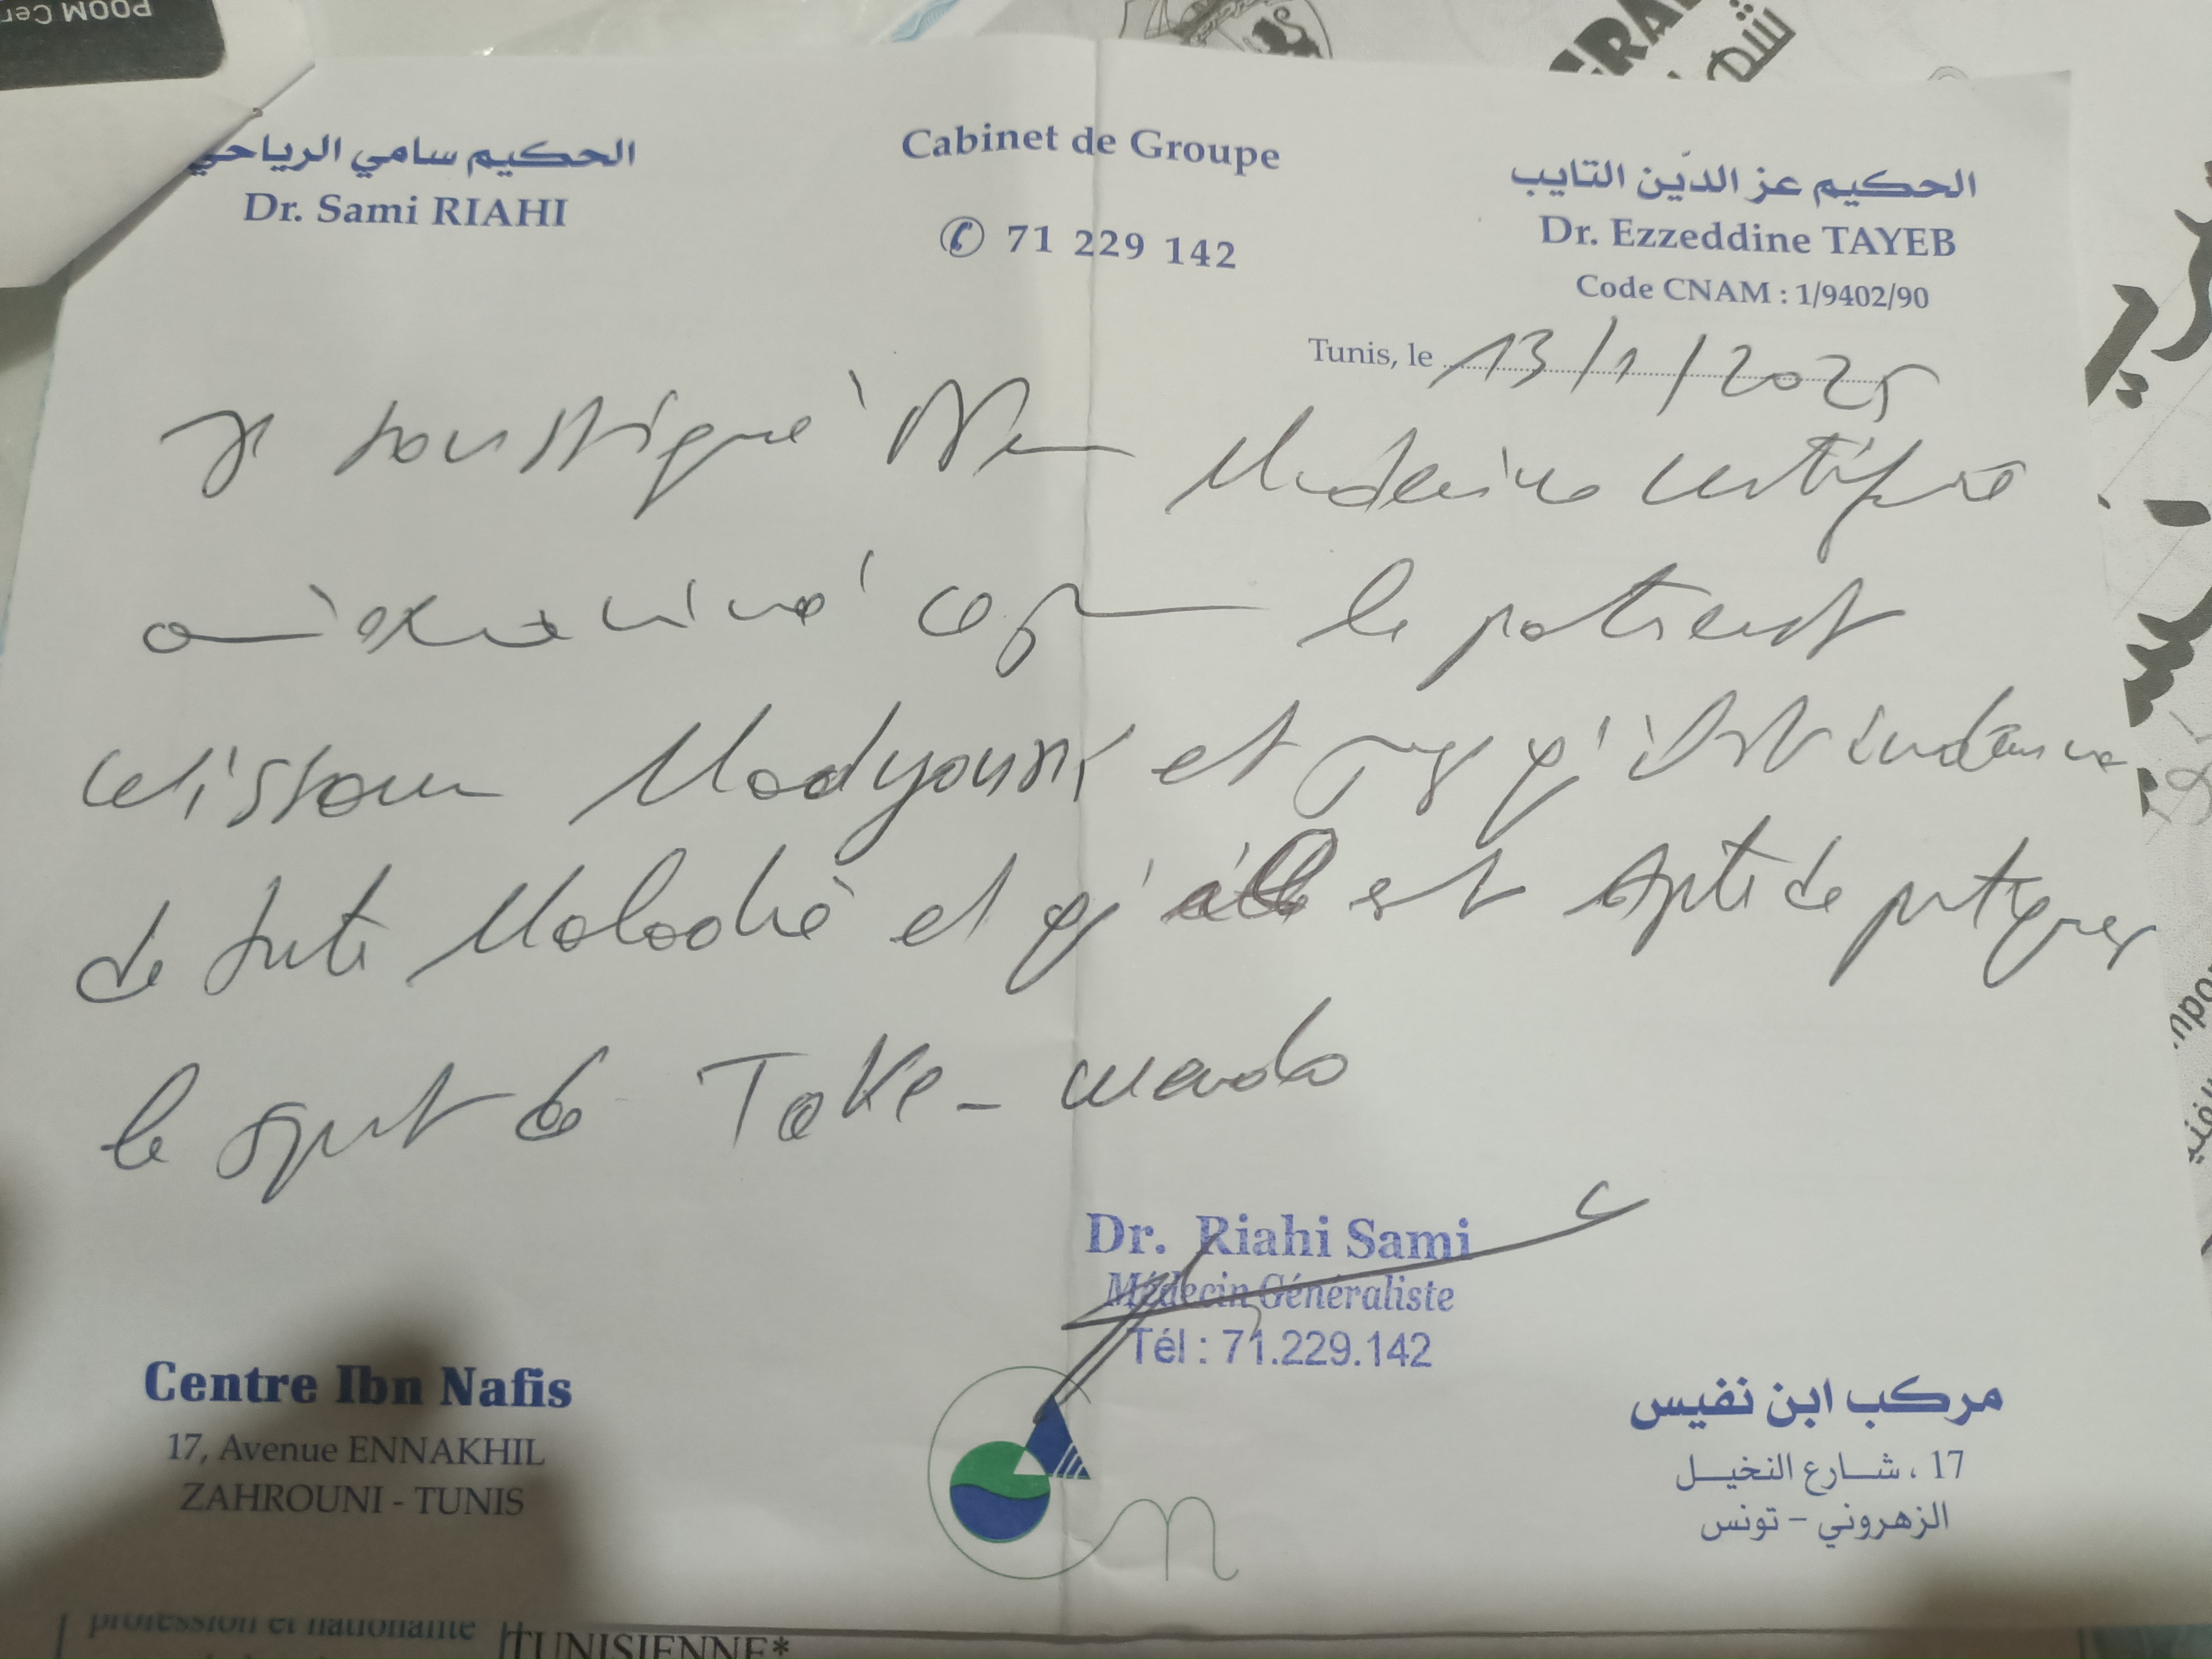 POOM Cer
الحكيم سامي الرياحي
Dr. Sami RIAHI
Cabinet de Groupe
71 229 142
الحكيم عز الدين التايب
Dr. Ezzeddine TAYEB
Code CNAM : 1/9402/90
Tunis, le 13/1/2025
Je soussigné Médecine certifie
examiné ce jour le patient
Madyouni et qu'il est indemne
de toute Maladie et qu'il est apte de pratiquer
le sport de Take-wando
Dr. Riahi Sami
Médecin Généraliste
Tél : 71.229.142
Centre Ibn Nafis
17, Avenue ENNAKHIL
ZAHROUNI - TUNIS
مركب ابن نفيس
17 ، شارع النخيل
الزهروني - تونس
profession et nationalité
TUNISIENNE*